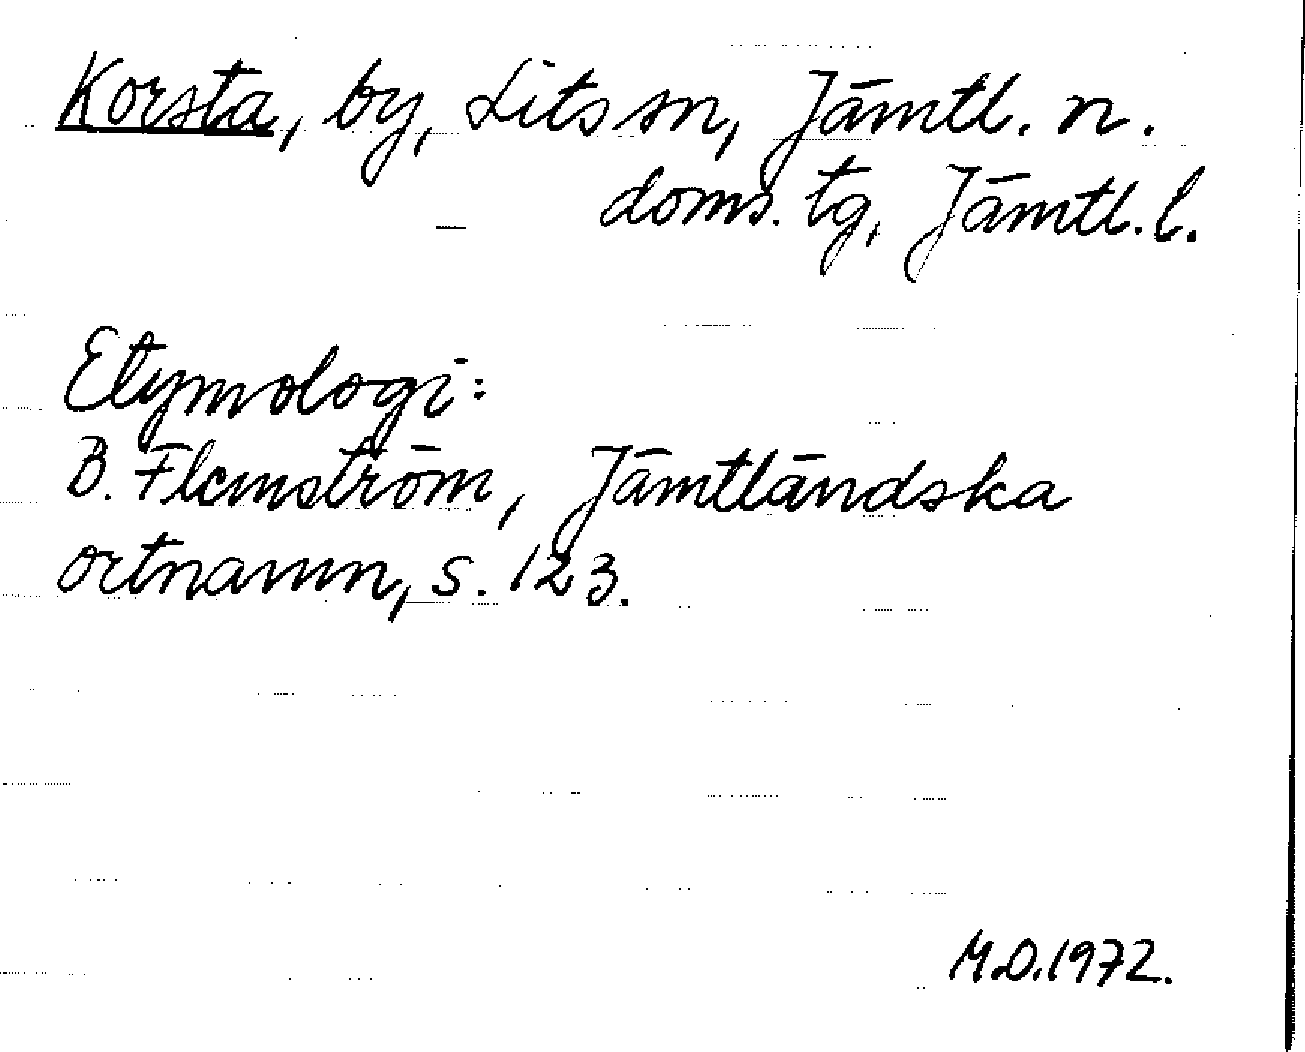 Korsta, by, Lits sn, Jämtl. n.
doms. tg, Jämtl. l.
Etymologi:
B. Flemström, Jämtländska
ortnamn, s. 123.
M.O.1972.